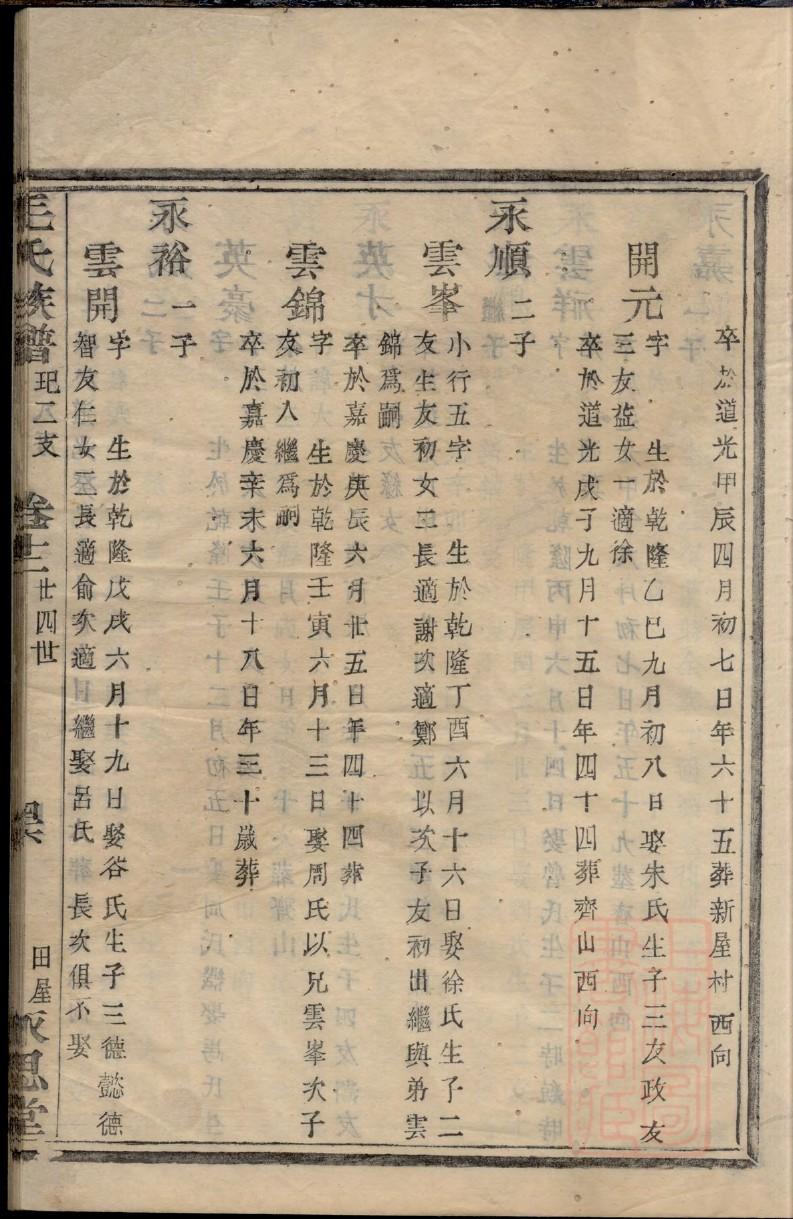 卒於道光甲辰四月初七日年六十五葬新屋村西向
開元
字 生於乾隆乙巳九月初八日娶朱氏生子三友政友
三友益女一適徐
卒於道光戊子九月十五日年四十四葬齊山西向
永順 二子
雲峯
小行五字 生於乾隆丁酉六月十六日娶徐氏生子二
友生友初女二長適謝次適鄭 以次子友初出繼與弟雲
錦爲嗣
卒於嘉慶庚辰六月廿五日年四十四葬
雲錦
字 生於乾隆壬寅六月十三日娶周氏以兄雲峯次子
友初入繼爲嗣
卒於嘉慶辛未六月十八日年三十歲葬
永裕 一子
雲開
字 生於乾隆戊戌六月十九日娶谷氏生子三德懿德
智友仁女三長適俞次適 繼娶呂氏 長次俱不娶
氏族譜 玘二支 卷十二 廿四世 田屋 永思堂